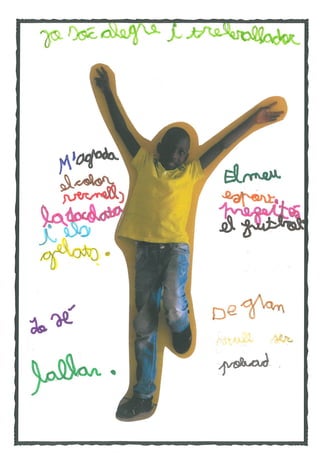 Jo soc alegre i treballador
M'agrada
el color
vermell,
la xocolata
i els
gelats.
El meu
esport
preferit és
el futbol
Jo sé
ballar.
De gran
vull ser
policia.